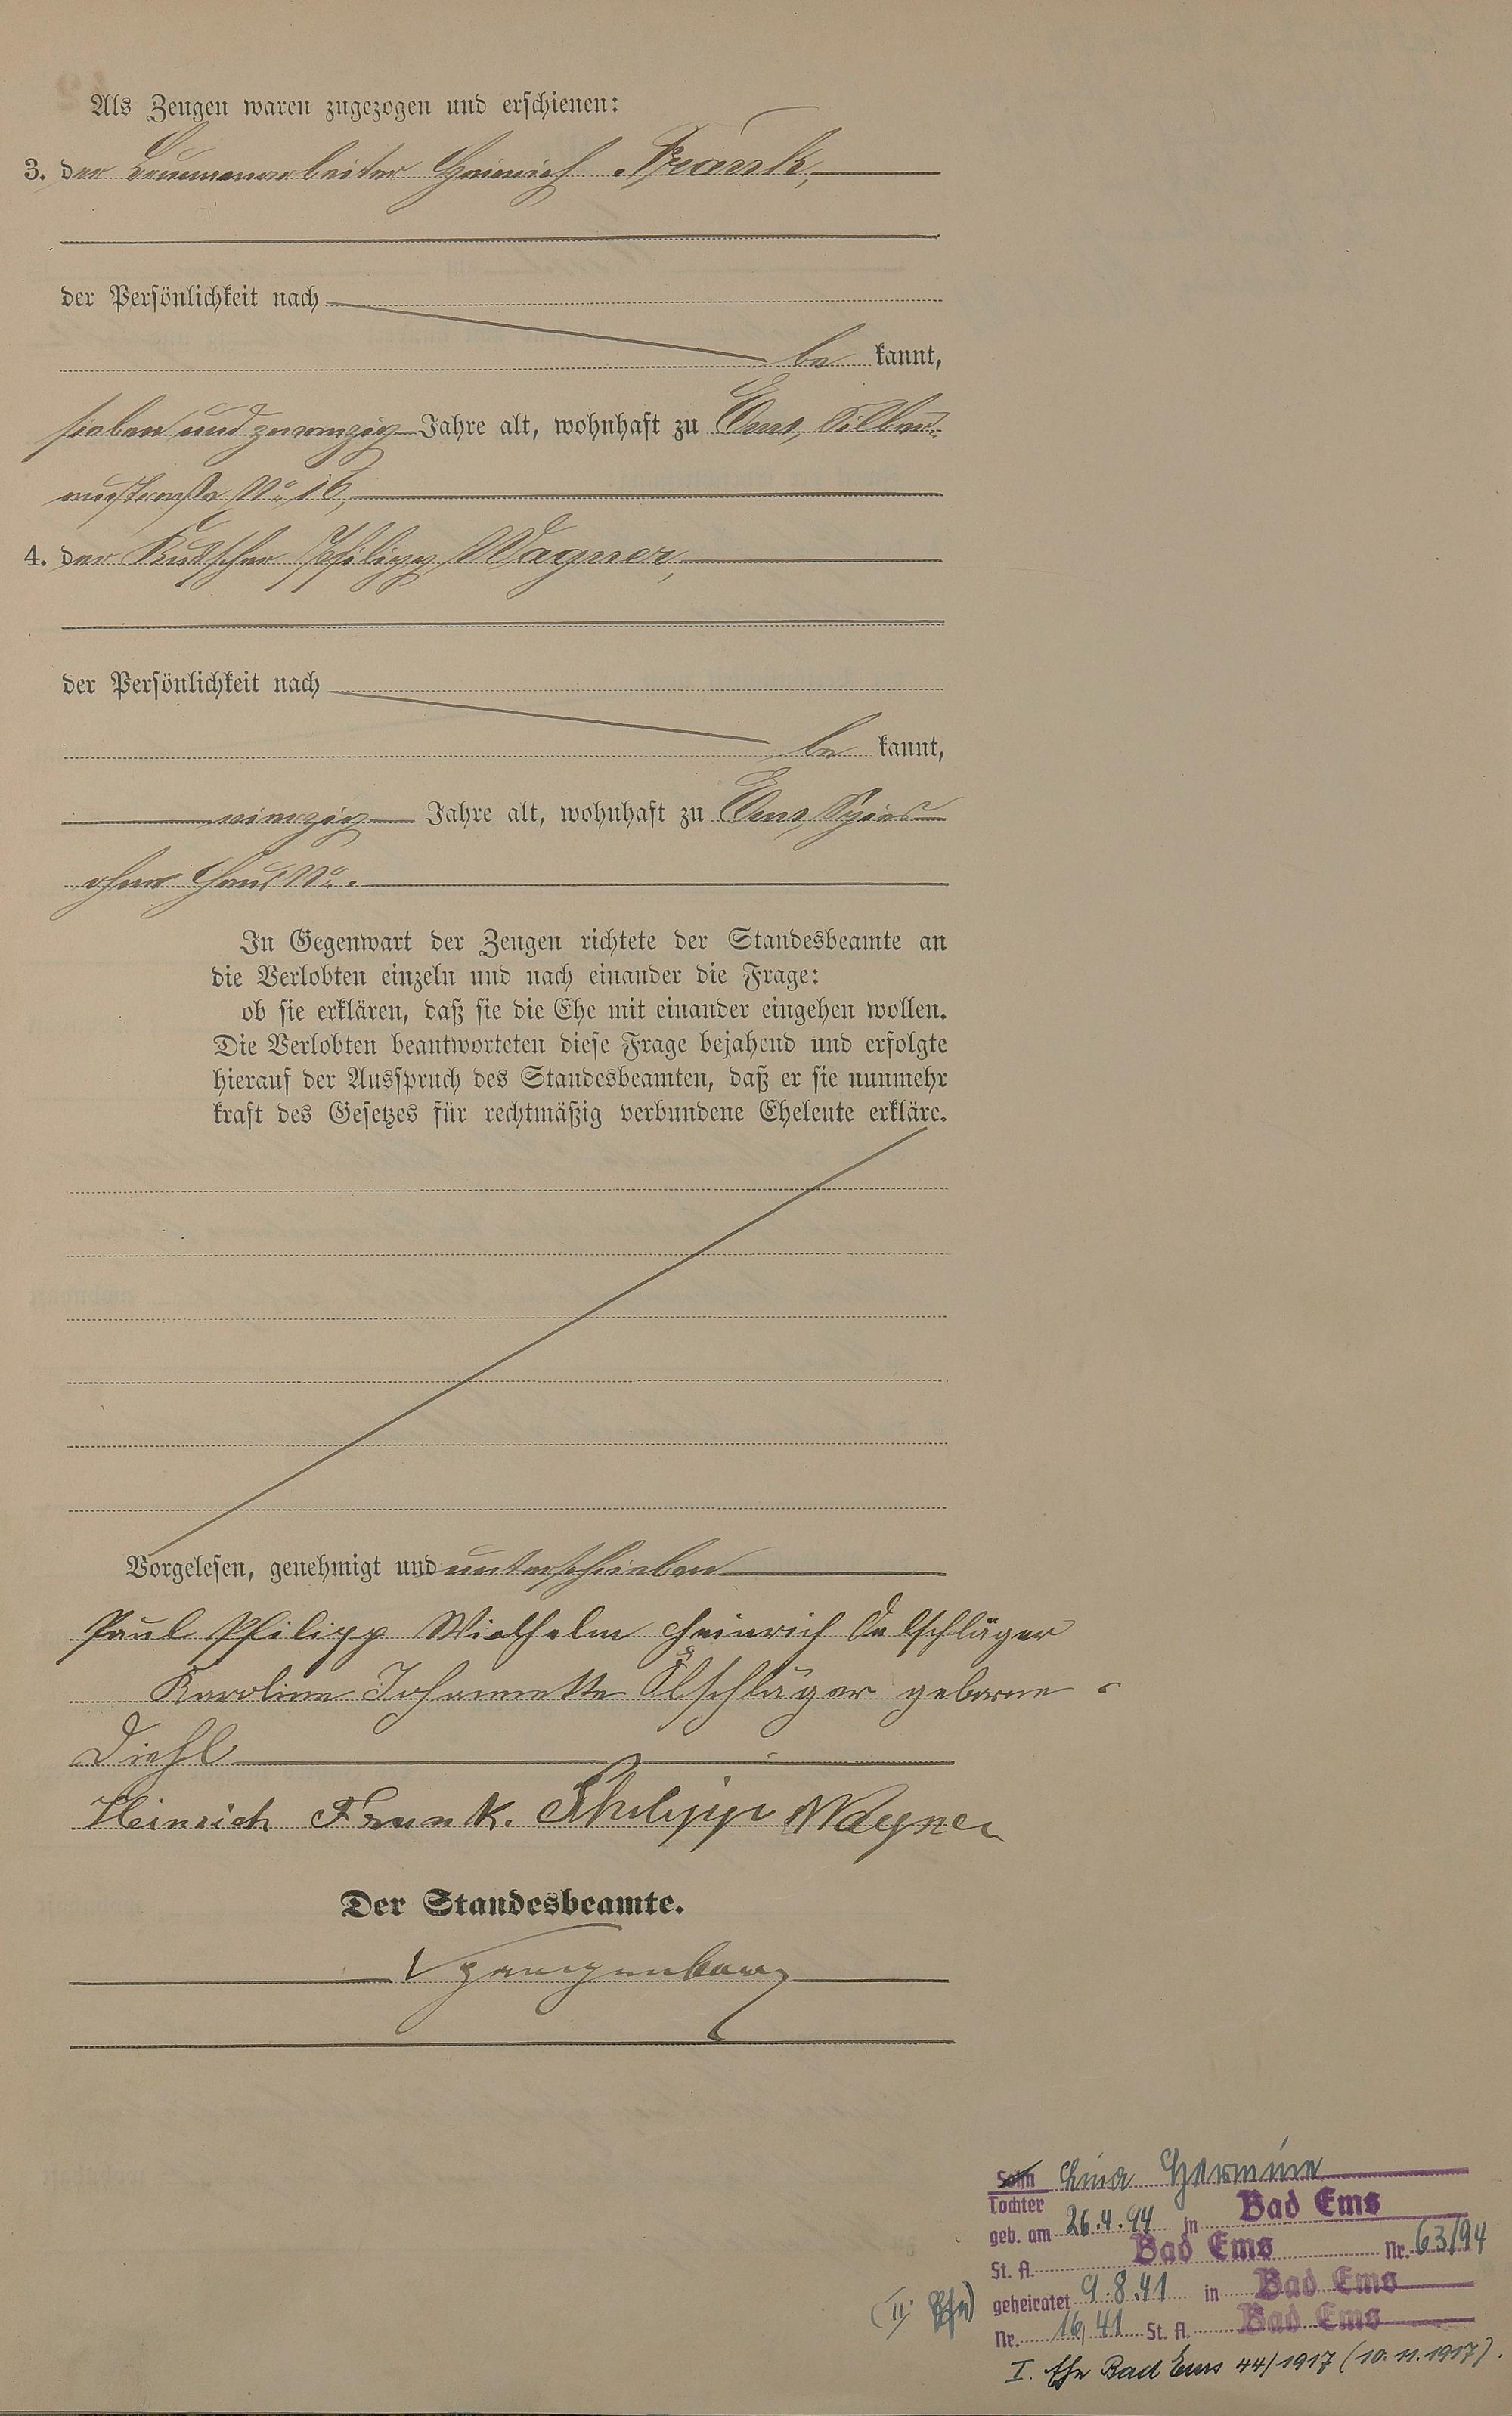 Als Zeugen waren zugezogen und erschienen:
3. der Brunnenarbeiter Heinrich Frank,
der Persönlichkeit nach
be kannt,
sieben und zwanzig Jahre alt, wohnhaft zu Ems, Silber-
austraße No. 16,
4. der Kutscher Philipp Wagner,
der Persönlichkeit nach
be kannt,
vierzig Jahre alt, wohnhaft zu Ems, Spies
ohne Haus No.
In Gegenwart der Zeugen richtete der Standesbeamte an
die Verlobten einzeln und nach einander die Frage:
ob sie erklären, daß sie die Ehe mit einander eingehen wollen.
Die Verlobten beantworteten diese Frage bejahend und erfolgte
hierauf der Ausspruch des Standesbeamten, daß er sie nunmehr
kraft des Gesetzes für rechtmäßig verbundene Eheleute erkläre.
Vorgelesen, genehmigt und unterschrieben
Paul Philipp Wilhelm Heinrich Oelschläger
Karoline Johannette Ölschläger geborne
Diehl
Heinrich Frank. Philipp Wagner
Der Standesbeamte.
Sohn Lina Hermine
Tochter
geb. am 26.4.94 in Bad Ems
St. A. Bad Ems Nr. 63/94
(II. Ehe) geheiratet 9.8.41 in Bad Ems
Nr. 16/41 St. A. Bad Ems
I. Ehe Bad Ems 44/1917 (10.11.1917).